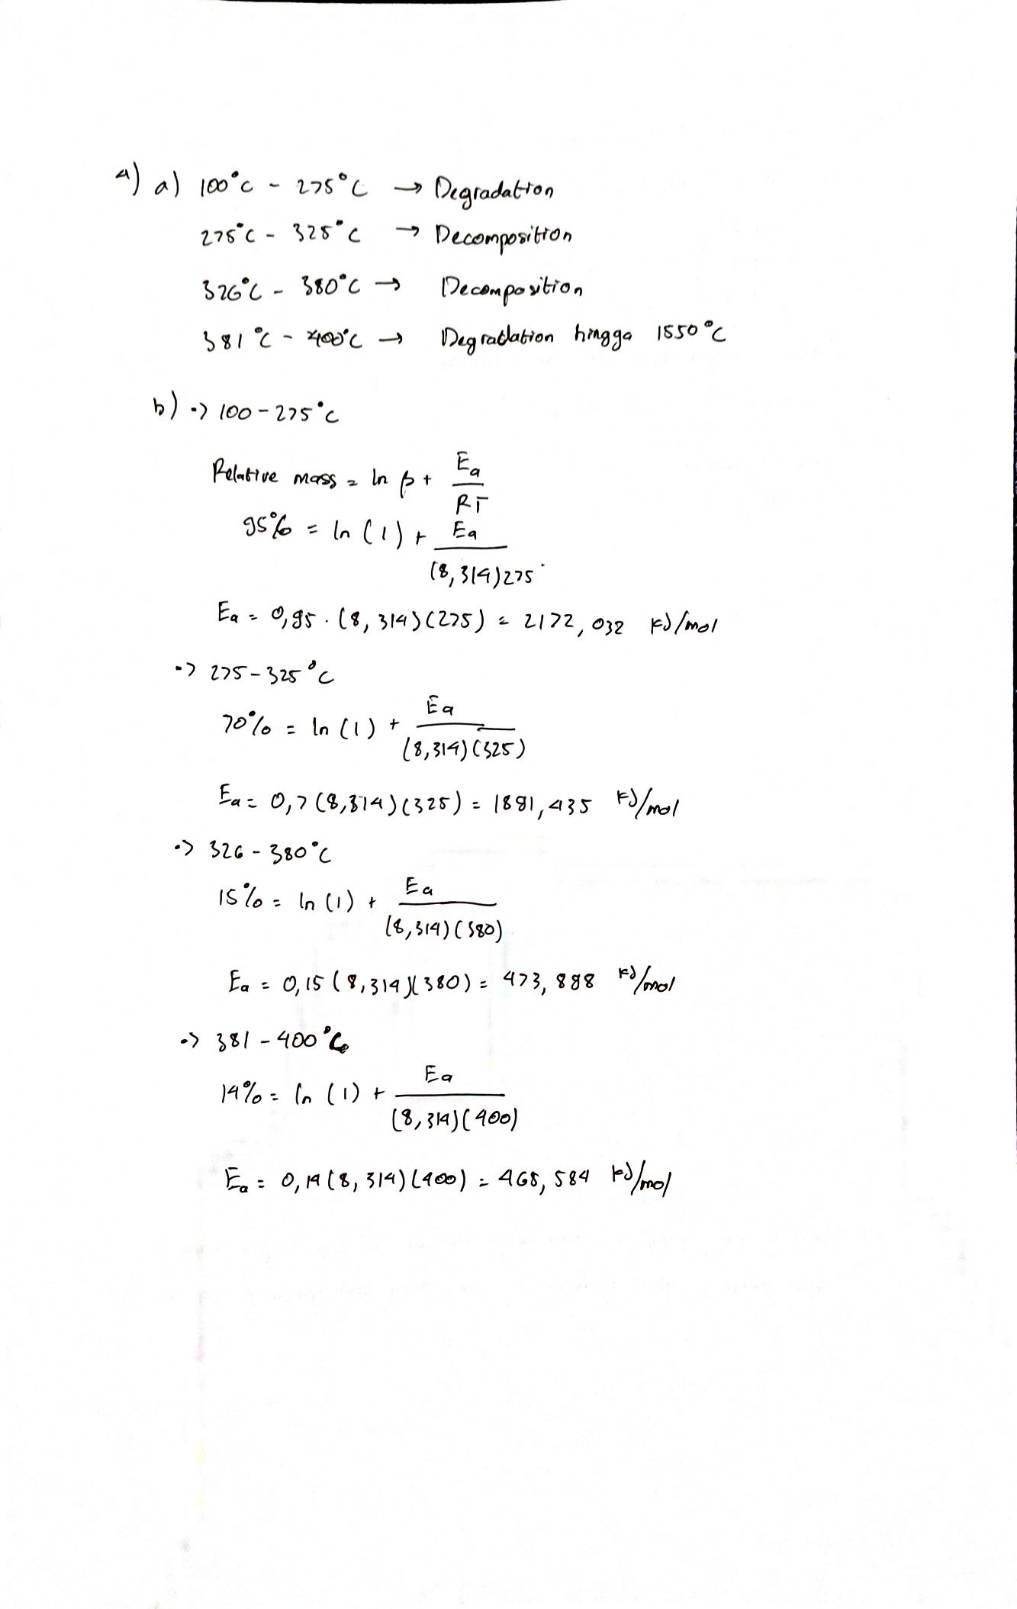 4) a) 100°C - 275°C → Degradation
275°C - 325°C → Decomposition
326°C - 380°C → Decomposition
381°C - 400°C → Degradation hingga 1550°C
b) •> 100 - 275°C
Relative mass = ln β + Ea/RT
95% = ln (1) + Ea/(8,314)275
Ea = 0,95 . (8,314)(275) = 2172,032 kJ/mol
•> 275 - 325°C
70% = ln (1) + Ea/(8,314)(325)
Ea = 0,7 (8,314)(325) = 1891,435 kJ/mol
•> 326 - 380°C
15% = ln (1) + Ea/(8,314)(380)
Ea = 0,15 (8,314)(380) = 473,898 kJ/mol
•> 381 - 400°C
14% = ln (1) + Ea/(8,314)(400)
Ea = 0,14 (8,314)(400) = 465,584 kJ/mol